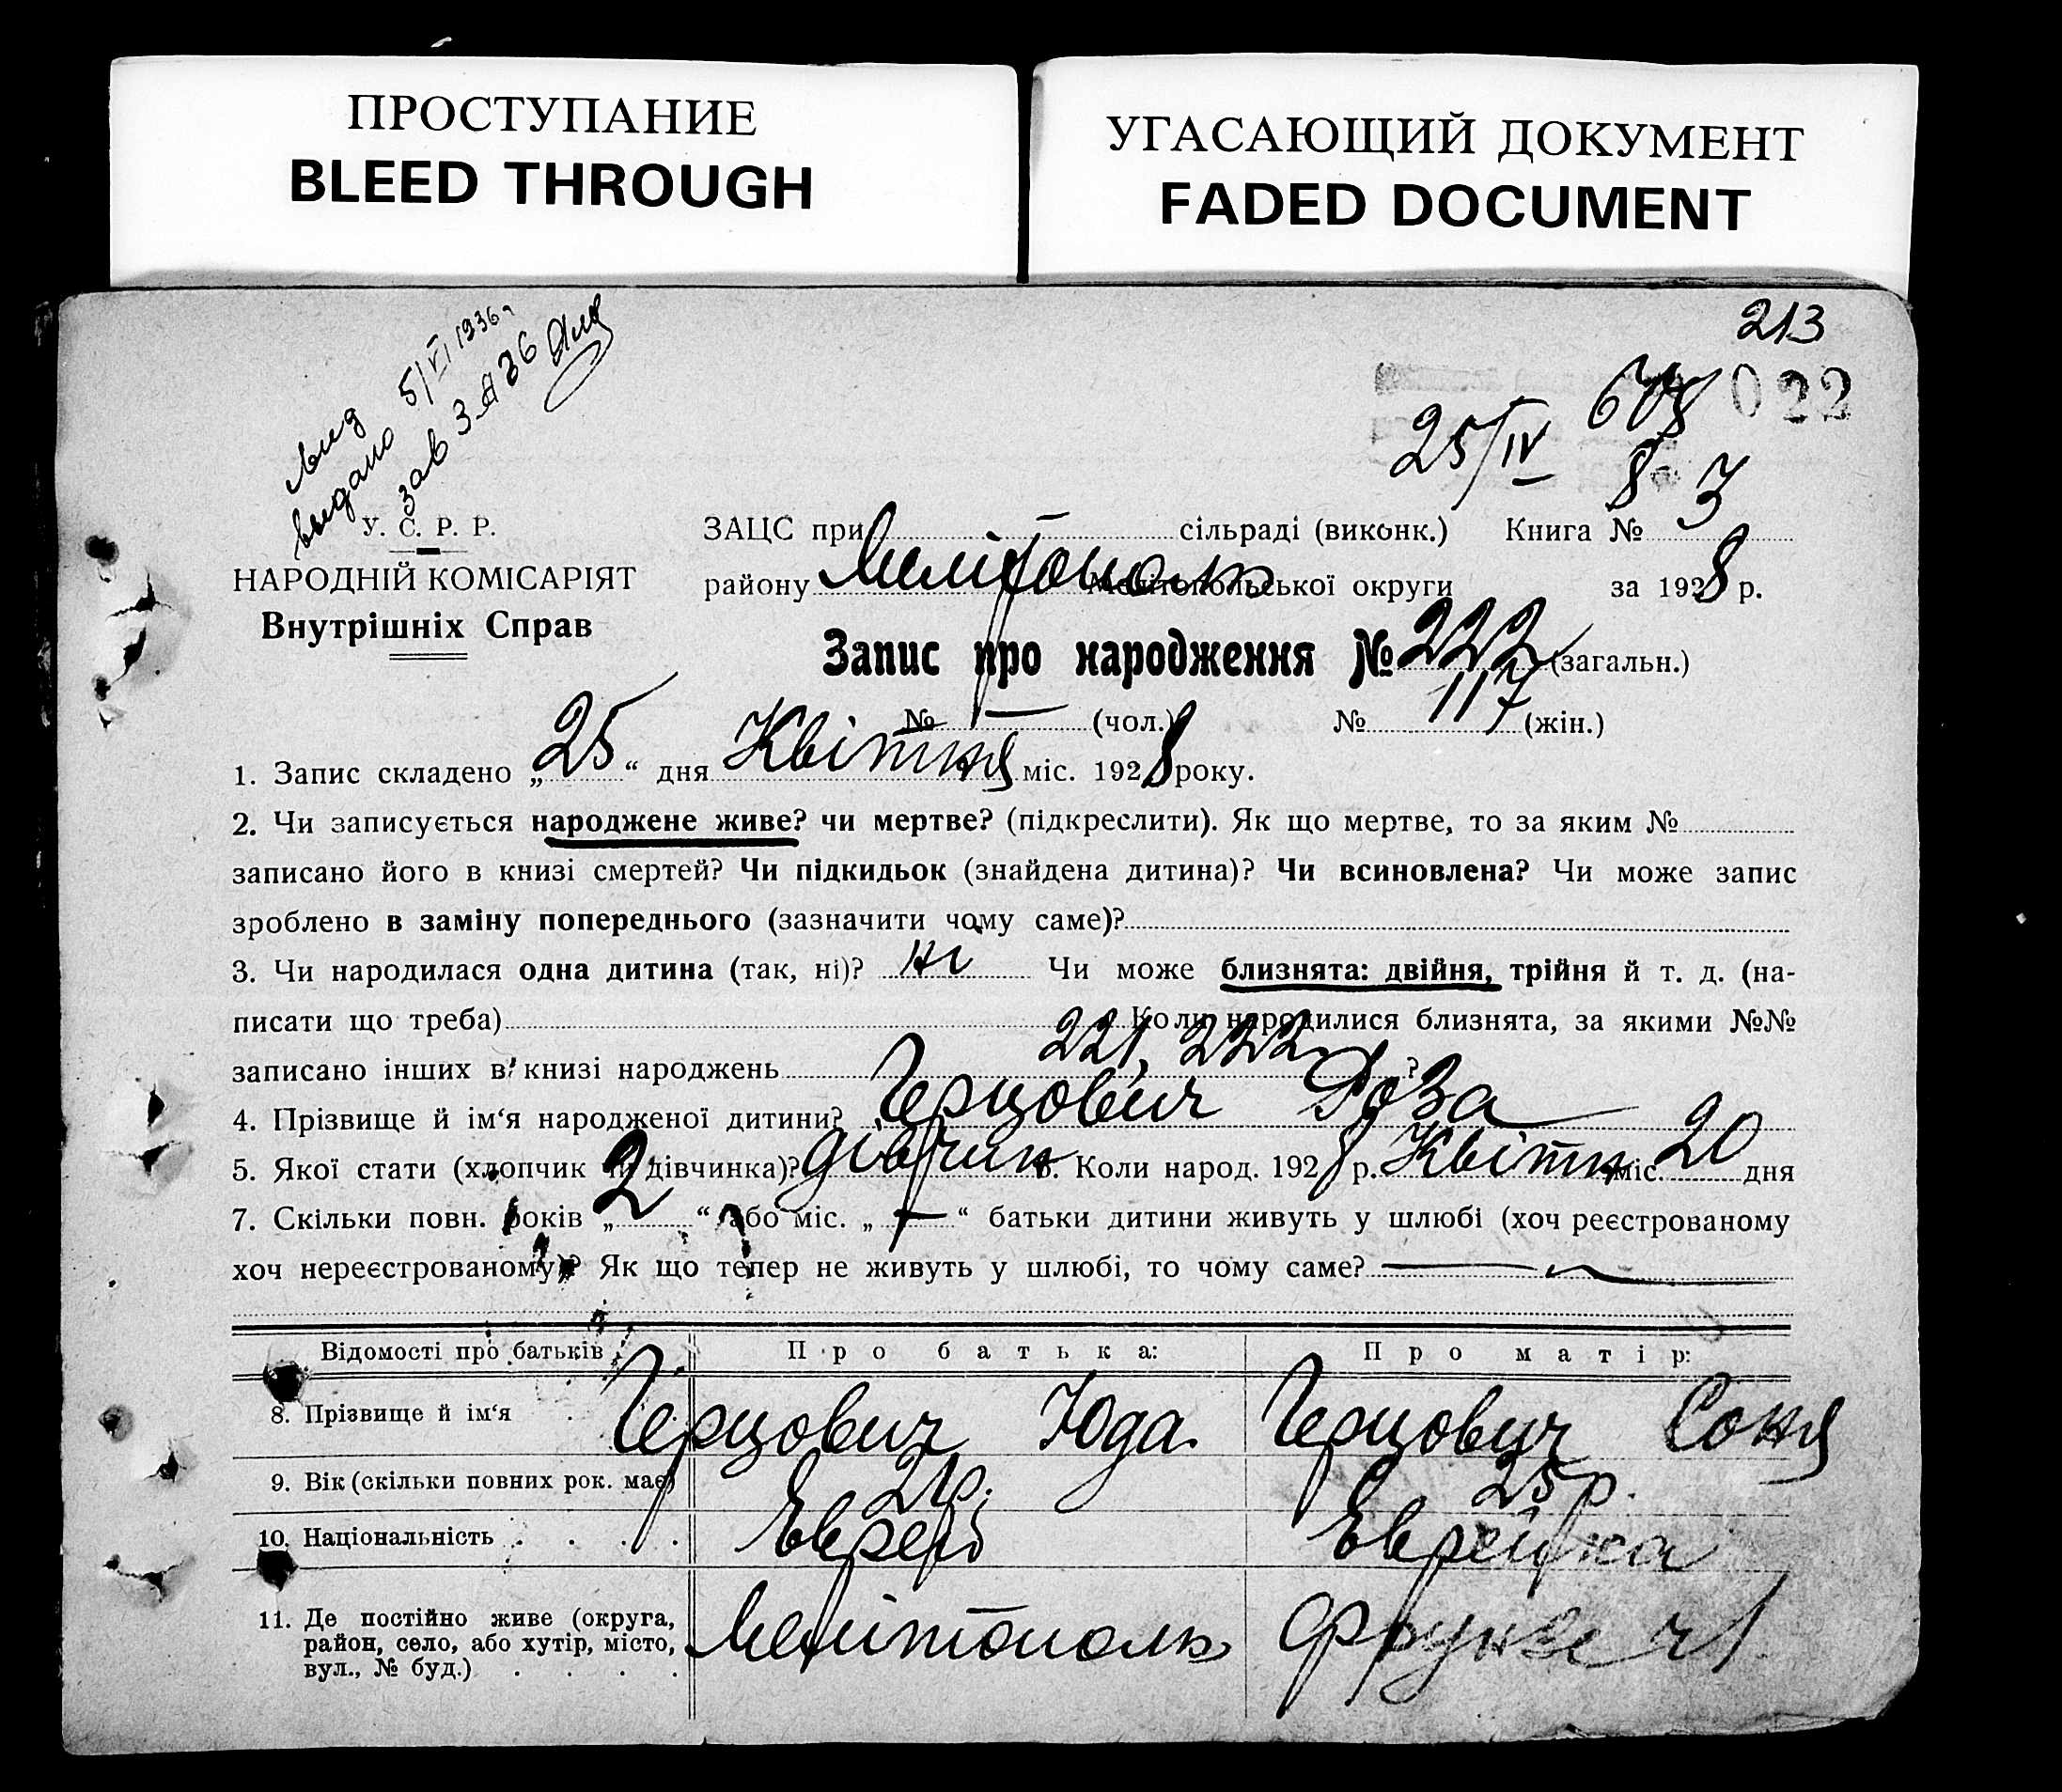 ПРОСТУПАНИЕ
BLEED THROUGH
УГАСАЮЩИЙ ДОКУМЕНТ
FADED DOCUMENT
213
022
выдано 5/VI 1936 г
25/IV
8
У. С. Р. Р.
НАРОДНІЙ КОМІСАРІЯТ
Внутрішніх Справ
ЗАЦС при сільраді (виконк.) Книга № 3
району Мелітополь Мелітопольської округи за 1928 р.
Запис про народження № 222 (загальн.)
№ — (чол.) № 117 (жін.)
1. Запис складено „25“ дня Квітня міс. 1928 року.
2. Чи записується народжене живе? чи мертве? (підкреслити). Як що мертве, то за яким №
записано його в книзі смертей? Чи підкидьок (знайдена дитина)? Чи всиновлена? Чи може запис
зроблено в заміну попереднього (зазначити чому саме)?
3. Чи народилася одна дитина (так, ні)? ні Чи може близнята: двійня, трійня й т. д. (на-
писати що треба) Коли народилися близнята, за якими №№
записано інших в книзі народжень 221, 222 ?
4. Прізвище й ім‘я народженої дитини? Герцович Роза
5. Якої стати (хлопчик чи дівчинка)? дівчин 6. Коли народ. 1928 р. Квітн міс. 20 дня
7. Скільки повн. років „2“ або міс. „—“ батьки дитини живуть у шлюбі (хоч реєстрованому
хоч нереєстрованому)? Як що тепер не живуть у шлюбі, то чому саме? —
Відомості про батьків Про батька: Про матір:
8. Прізвище й ім‘я Герцович Юда Герцович Соня
9. Вік (скільки повних рок. має) 25 р.
10. Національність Еврей Еврейка
11. Де постійно живе (округа, район, село, або хутір, місто, вул., № буд.) Мелітополь Фрунзе